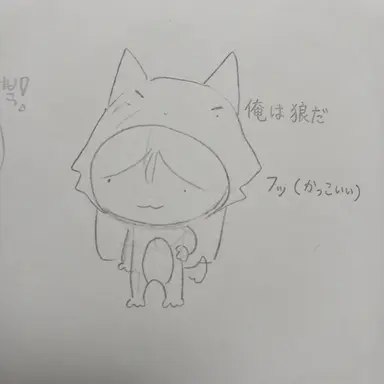 俺は狼だ
フッ(かっこいい)